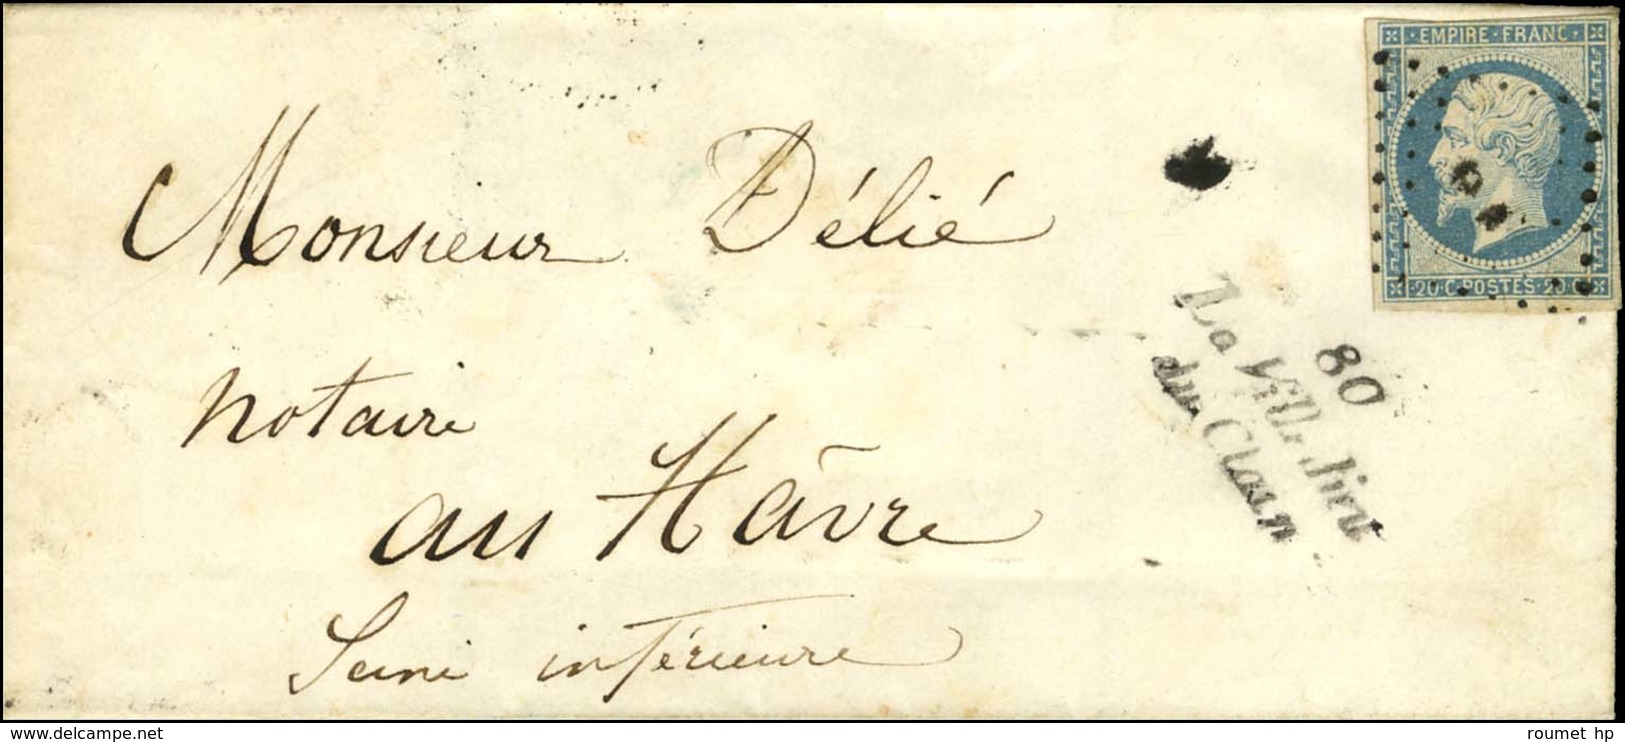 EMPIRE · FRANC ·
Monsieur Délié
20 · C · POSTES · 20 · C
80
La Ville Dieu
du Clain
notaire
au Hâvre
Seine inférieure
www.delcampe.net
roumet hp